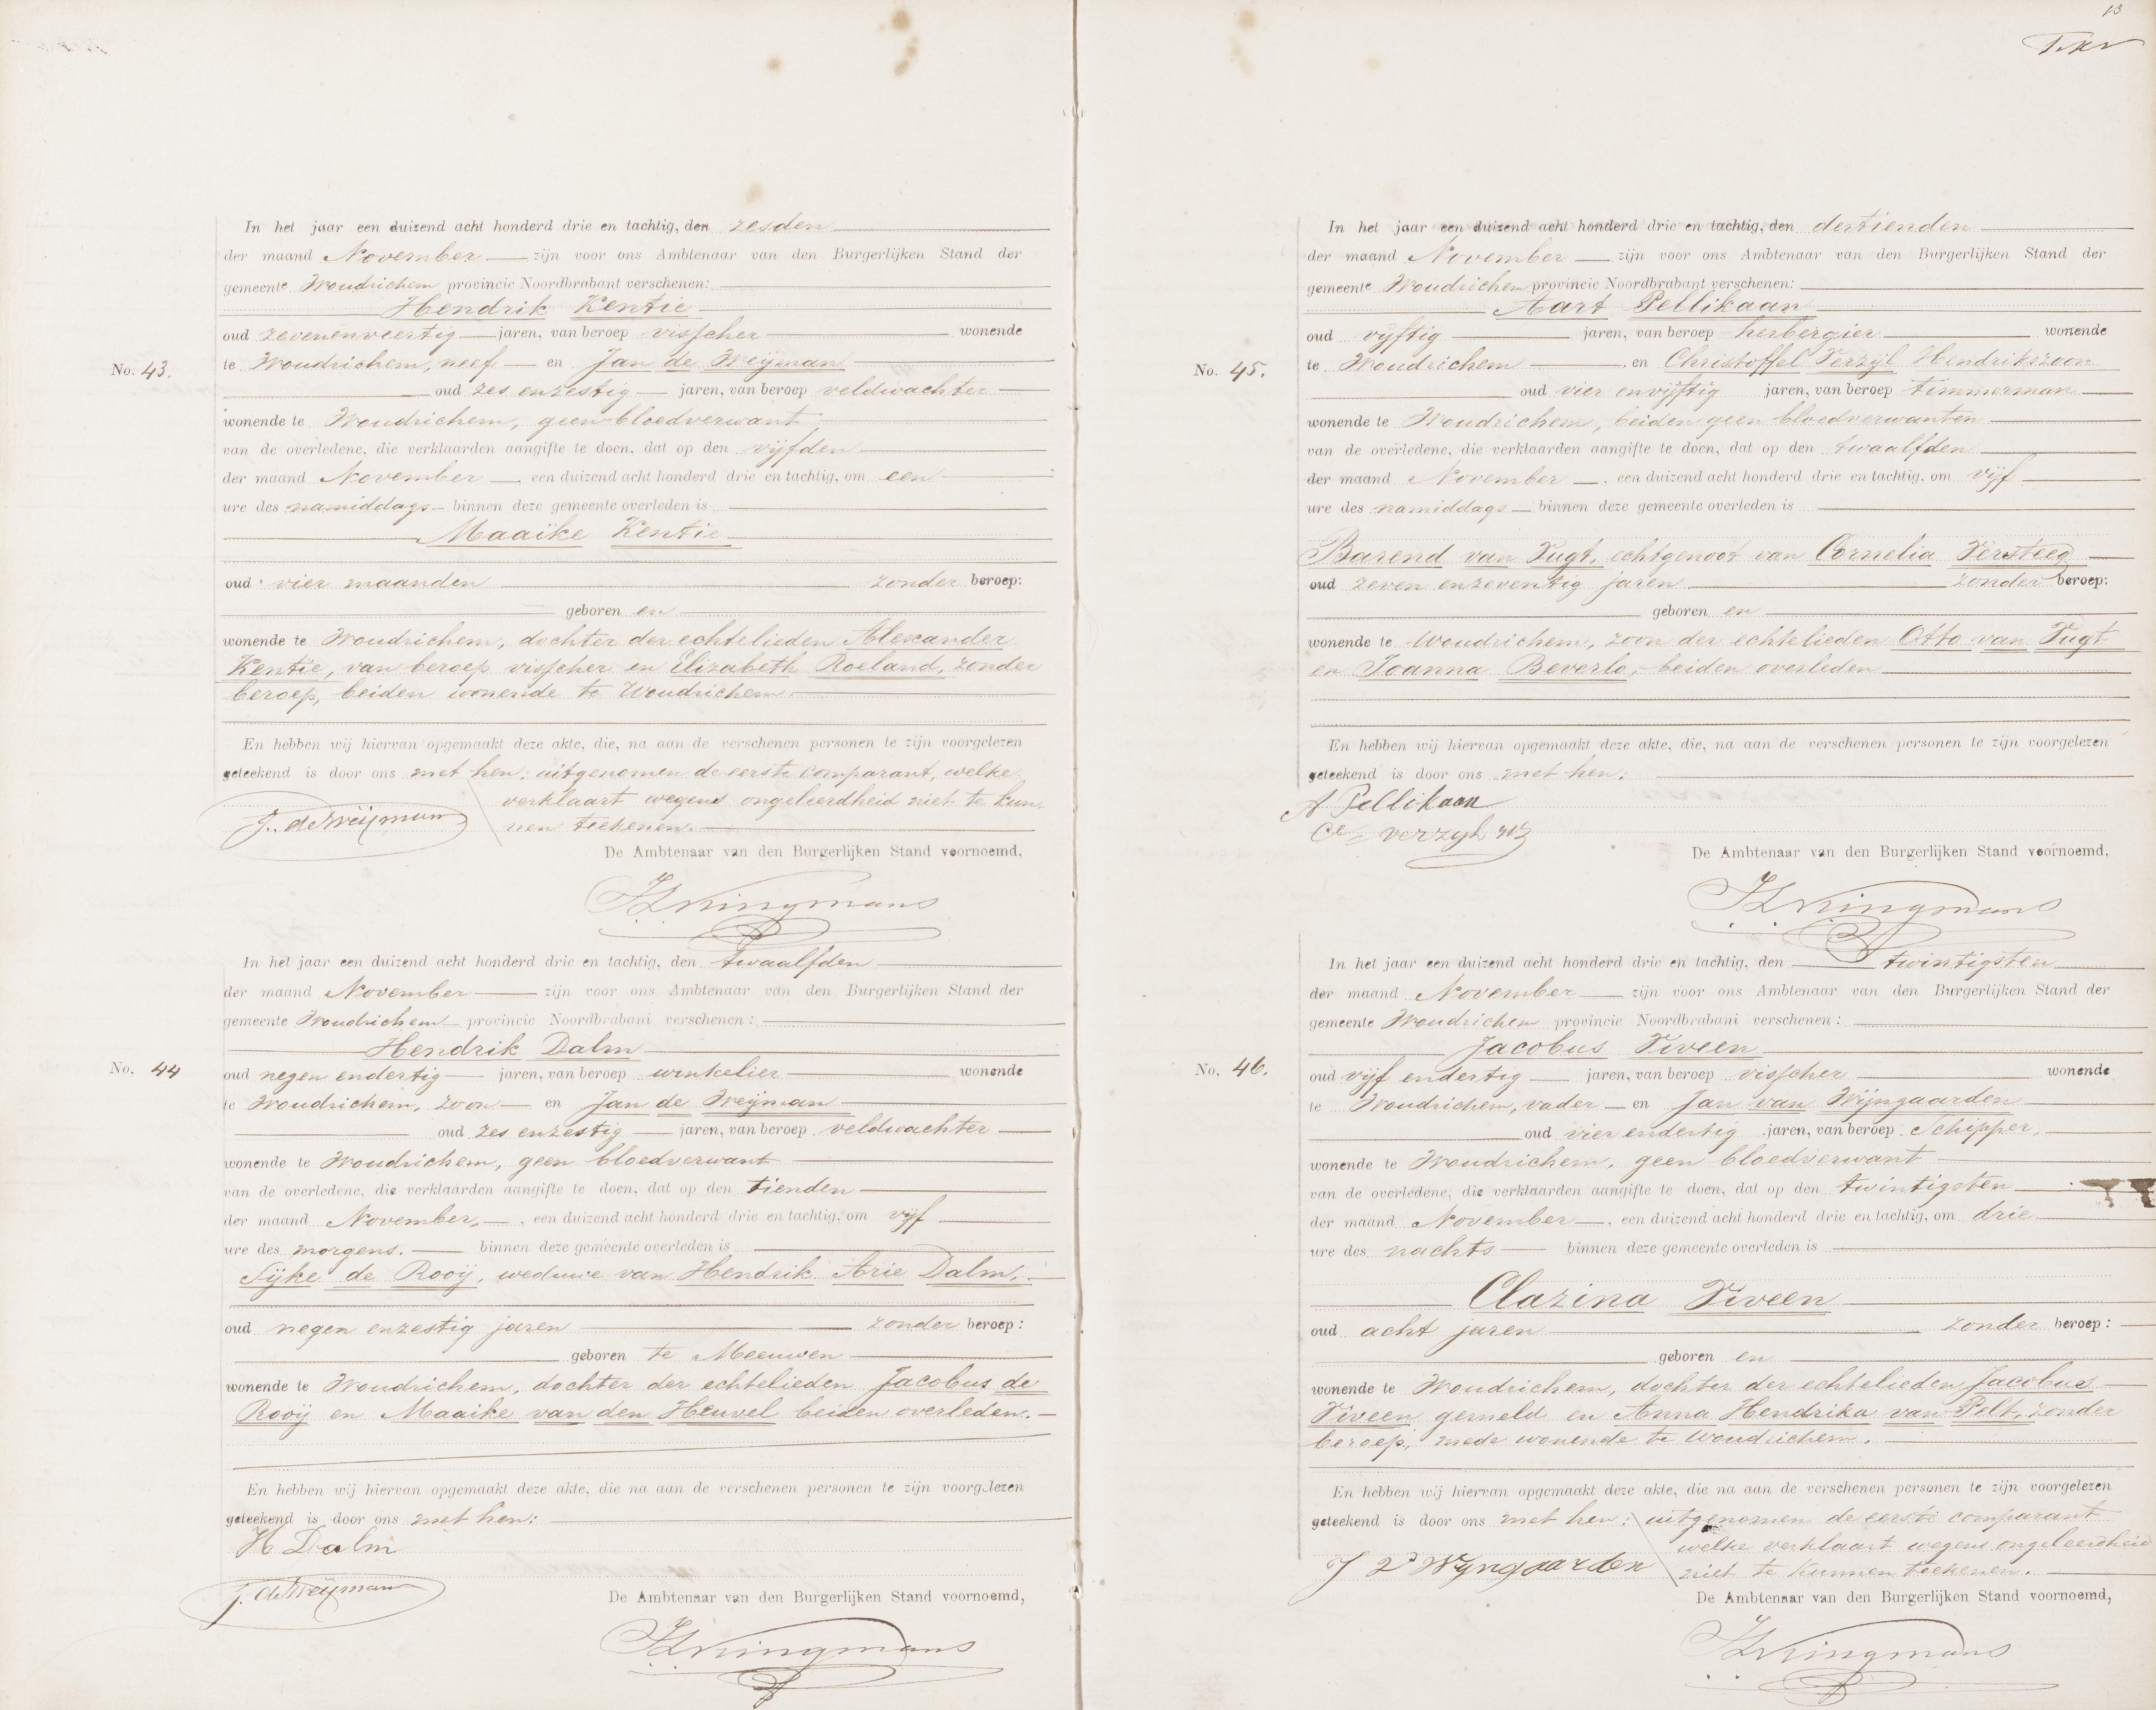 In het jaar een duizend acht honderd drie en tachtig, den zesden
der maand November zijn voor ons Ambtenaar van den Burgerlijken Stand der
gemeente Woudrichem provincie Noordbrabant verschenen:
Hendrik Kentie
oud zevenenveertig jaren, van beroep visscher wonende
No. 43. te Woudrichem, neef en Jan de Weijman
oud zes enzestig jaren, van beroep veldwachter
wonende te Woudrichem, geen bloedverwant,
van de overledene, die verklaarden aangifte te doen, dat op den vijfden
der maand November, een duizend acht honderd drie en tachtig, om een
ure des namiddags binnen deze gemeente overleden is
Maaike Kentie
oud vier maanden zonder beroep:
geboren en
wonende te Woudrichem, dochter der echtelieden Alexander
Kentie, van beroep visscher en Elizabeth Roeland, zonder
beroep, beiden wonende te Woudrichem.
En hebben wij hiervan opgemaakt deze akte, die, na aan de verschenen personen te zijn voorgelezen
geteekend is door ons met hen; uitgenomen de eerste comparant, welke
verklaart wegens ongeleerdheid niet te kun-
nen teekenen.
J. de Weijman
De Ambtenaar van den Burgerlijken Stand voornoemd,
In het jaar een duizend acht honderd drie en tachtig, den twaalfden
der maand November zijn voor ons Ambtenaar van den Burgerlijken Stand der
gemeente Woudrichem provincie Noordbrabant verschenen:
Hendrik Dalm
No. 44 oud negen endertig jaren, van beroep winkelier wonende
te Woudrichem, zoon en Jan de Weijman
oud zes enzestig jaren, van beroep veldwachter
wonende te Woudrichem, geen bloedverwant
van de overledene, die verklaarden aangifte te doen, dat op den tienden
der maand November, een duizend acht honderd drie en tachtig, om vijf
ure des morgens. binnen deze gemeente overleden is
Sijke de Rooij, weduwe van Hendrik Arie Dalm,
oud negen enzestig jaren zonder beroep:
geboren te Meeuwen
wonende te Woudrichem, dochter der echtelieden Jacobus de
Rooij en Maaike van den Heuvel beiden overleden.
En hebben wij hiervan opgemaakt deze akte, die na aan de verschenen personen te zijn voorgelezen
geteekend is door ons met hen:
H Dalm
J. de Weijman
De Ambtenaar van den Burgerlijken Stand voornoemd,
13
In het jaar een duizend acht honderd drie en tachtig, den dertienden
der maand November zijn voor ons Ambtenaar van den Burgerlijken Stand der
gemeente Woudrichem provincie Noordbrabant verschenen:
Aart Pellikaan
oud vijftig jaren, van beroep herbergier wonende
No. 45. te Woudrichem en Christoffel Verzijl Hendrikszoon
oud vier envijftig jaren, van beroep timmerman
wonende te Woudrichem, beiden geen bloedverwanten
van de overledene, die verklaarden aangifte te doen, dat op den twaalfden
der maand November, een duizend acht honderd drie en tachtig, om vijf
ure des namiddags binnen deze gemeente overleden is
Barend van Vugt, echtgenoot van Cornelia Versteeg
oud zeven enzeventig jaren zonder beroep:
geboren en
wonende te Woudrichem, zoon der echtelieden Otto van Vugt
en Joanna Beverlo, beiden overleden
En hebben wij hiervan opgemaakt deze akte, die, na aan de verschenen personen te zijn voorgelezen
geteekend is door ons met hen:
A Pellikaan
De Ambtenaar van den Burgerlijken Stand voornoemd,
In het jaar een duizend acht honderd drie en tachtig, den twintigsten
der maand November zijn voor ons Ambtenaar van den Burgerlijken Stand der
gemeente Woudrichem provincie Noordbrabant verschenen:
Jacobus Viveen
No. 46. oud vijf endertig jaren, van beroep visscher wonende
te Woudrichem, vader en Jan van Wijngaarden
oud vier endertig jaren, van beroep Schipper,
wonende te Woudrichem, geen bloedverwant
van de overledene, die verklaarden aangifte te doen, dat op den twintigsten
der maand November, een duizend acht honderd drie en tachtig, om drie
ure des nachts binnen deze gemeente overleden is
Clazina Viveen
oud acht jaren zonder beroep:
geboren en
wonende te Woudrichem, dochter der echtelieden Jacobus
Viveen gemeld en Anna Hendrika van Pelt, zonder
beroep, mede wonende te Woudrichem.
En hebben wij hiervan opgemaakt deze akte, die na aan de verschenen personen te zijn voorgelezen
geteekend is door ons met hen; uitgenomen de eerste comparant
welke verklaart wegens ongeleerdheid
niet te kunnen teekenen.
De Ambtenaar van den Burgerlijken Stand voornoemd,